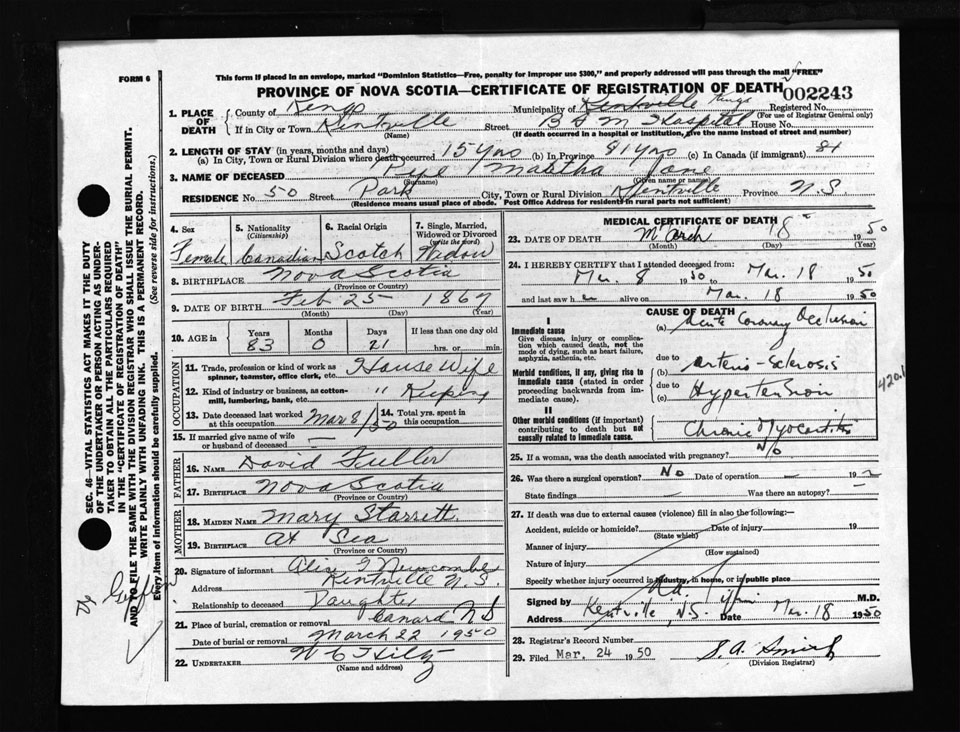 FORM 6
This form if placed in an envelope, marked "Dominion Statistics—Free, penalty for improper use $300," and properly addressed will pass through the mail "FREE"
PROVINCE OF NOVA SCOTIA—CERTIFICATE OF REGISTRATION OF DEATH 002243
1. PLACE OF DEATH County of Kings Municipality of Kentville Kings Registered No.
(For use of Registrar General only)
If in City or Town Kentville Street B F M Hospital House No.
(Name) (If death occurred in a hospital or institution, give the name instead of street and number)
2. LENGTH OF STAY (in years, months and days)
(a) In City, Town or Rural Division where death occurred 15 yrs (b) In Province 81 yrs (c) In Canada (if immigrant) 81
3. NAME OF DECEASED Pye Maatha Jane
(Surname) (Given name or names)
RESIDENCE No. 50 Street Park City, Town or Rural Division Kentville Province N.S
(Residence means usual place of abode. Post Office Address for residents in rural parts not sufficient)
4. Sex 5. Nationality (Citizenship) 6. Racial Origin 7. Single, Married, Widowed or Divorced (write the word)
Female Canadian Scotch Widow
8. BIRTHPLACE Nova Scotia
(Province or Country)
9. DATE OF BIRTH Feb 25 1867
(Month) (Day) (Year)
10. AGE in Years Months Days If less than one day old
83 0 21 hrs. or min.
OCCUPATION
11. Trade, profession or kind of work as spinner, teamster, office clerk, etc. House Wife
12. Kind of industry or business, as cotton-mill, lumbering, bank, etc. " Keeping
13. Date deceased last worked at this occupation Mar 8/50 14. Total yrs. spent in this occupation
15. If married give name of wife or husband of deceased —
FATHER
16. NAME David Fuller
17. BIRTHPLACE Nova Scotia
(Province or Country)
MOTHER
18. MAIDEN NAME Mary Starrett.
19. BIRTHPLACE At Sea
(Province or Country)
20. Signature of informant Newcombe
Address Kentville N.S.
Relationship to deceased Daughter
21. Place of burial, cremation or removal Canard N S
Date of burial or removal March 22 1950
22. UNDERTAKER W C Hiltz
(Name and address)
MEDICAL CERTIFICATE OF DEATH
23. DATE OF DEATH March 18 1950
(Month) (Day) (Year)
24. I HEREBY CERTIFY that I attended deceased from:
Mar. 8 1950 to Mar. 18 1950
and last saw her alive on Mar. 18 1950
CAUSE OF DEATH
I
Immediate cause
Give disease, injury or complication which caused death, not the mode of dying, such as heart failure, asphyxia, asthenia, etc.
(a) Acute Coronary Occlusion
due to
Morbid conditions, if any, giving rise to immediate cause (stated in order proceeding backwards from immediate cause).
(b) arterio-sclerosis
due to
(c) Hypertension
420.1
II
Other morbid conditions (if important) contributing to death but not causally related to immediate cause.
Chronic Myocarditis
25. If a woman, was the death associated with pregnancy? No
26. Was there a surgical operation? No Date of operation — 19
State findings — Was there an autopsy? —
27. If death was due to external causes (violence) fill in also the following:—
Accident, suicide or homicide? Date of injury 19
(State which)
Manner of injury
(How sustained)
Nature of injury
Specify whether injury occurred in industry, in home, or in public place
Signed by M.D.
Address Kentville, N.S. Date Mar. 18 1950
28. Registrar's Record Number
29. Filed Mar. 24 1950 S. A. Smith
(Division Registrar)
SEC. 46—VITAL STATISTICS ACT MAKES IT THE DUTY OF THE UNDERTAKER OR PERSON ACTING AS UNDERTAKER TO OBTAIN ALL THE PARTICULARS REQUIRED IN THE "CERTIFICATE OF REGISTRATION OF DEATH" AND TO FILE THE SAME WITH THE DIVISION REGISTRAR WHO SHALL ISSUE THE BURIAL PERMIT.
WRITE PLAINLY WITH UNFADING INK. THIS IS A PERMANENT RECORD.
Every item of information should be carefully supplied. (See reverse side for instructions.)